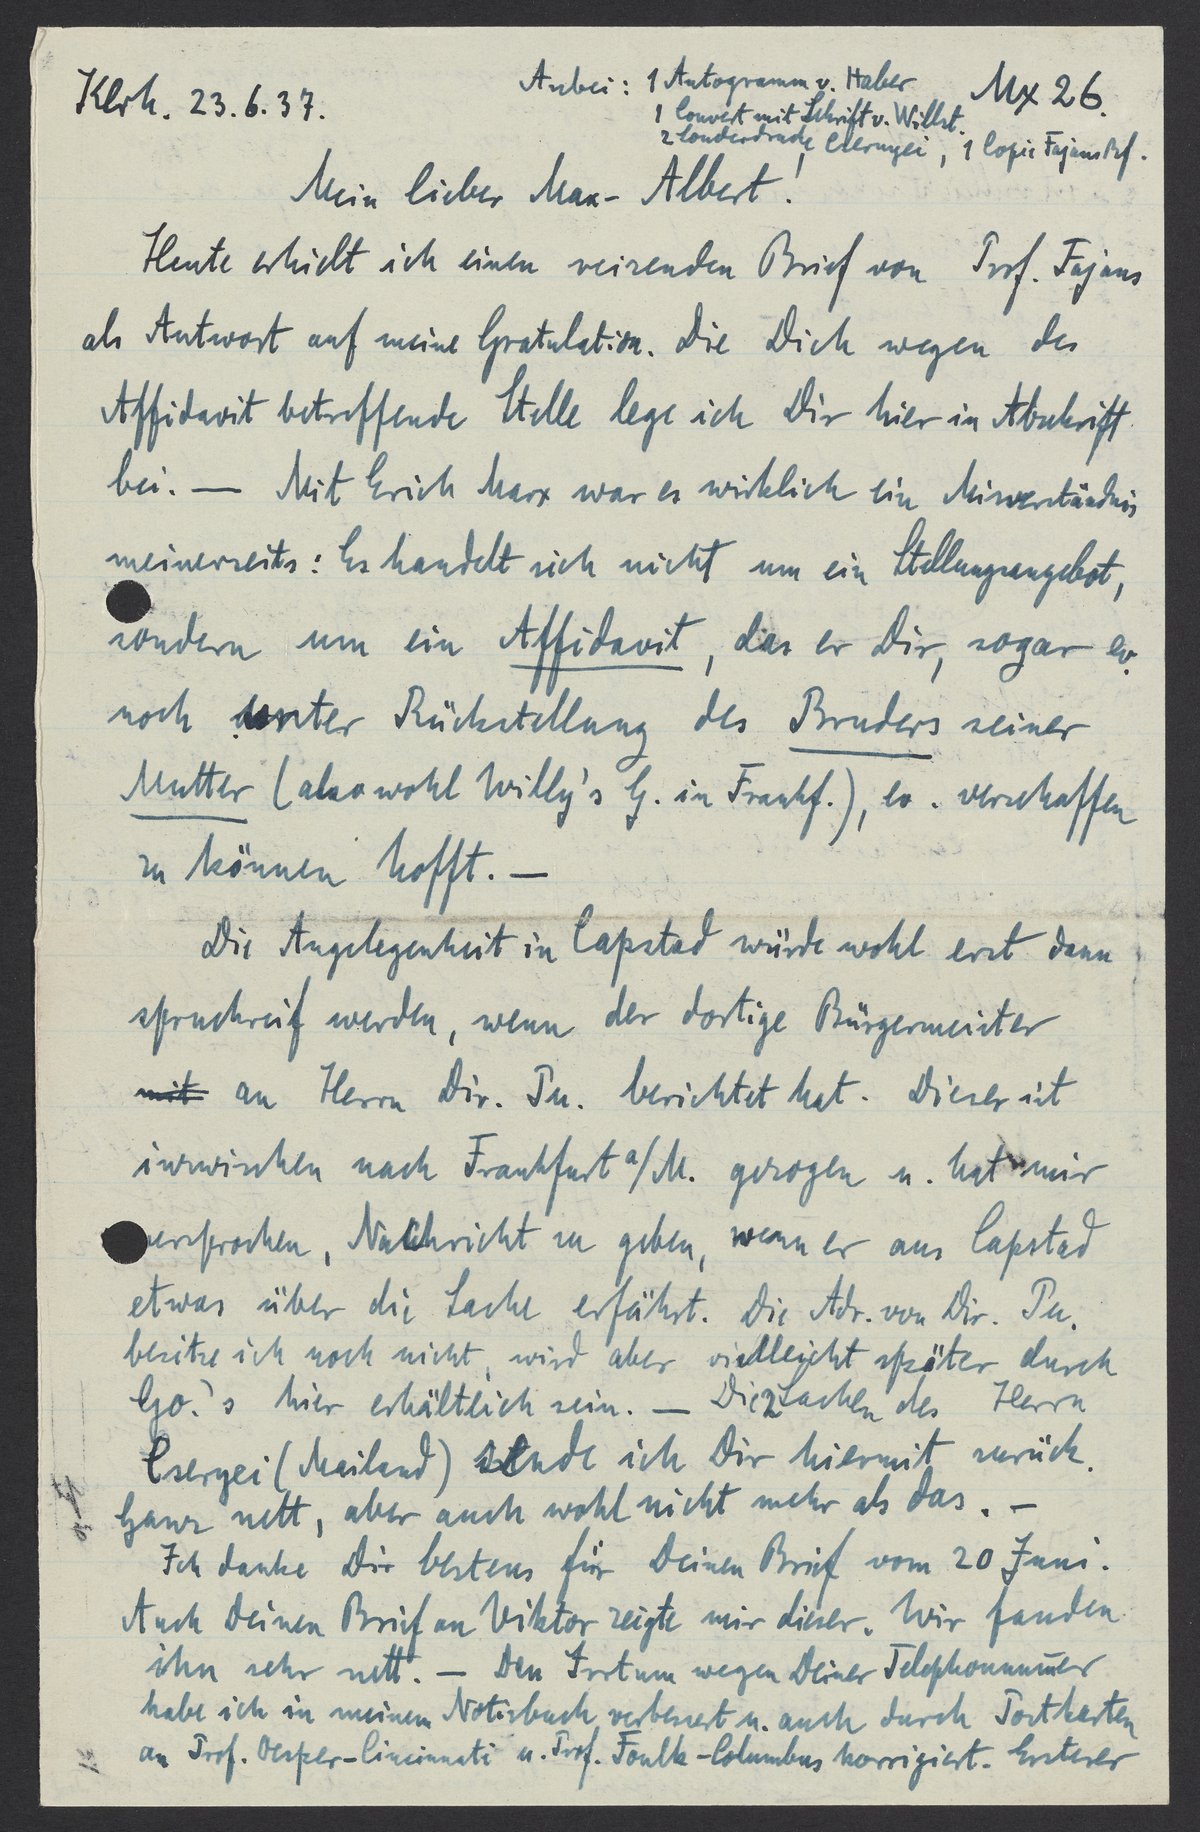 Klrh. 23.6.37.
Anbei: 1 Autogramm v. Haber
Mx 26.
1 Couvert mit Schrift v. Willst.
2 Sonderdrucke Csernyei, 1 Copie Fajans Brf.
Mein lieber Max-Albert!
Heute erhielt ich einen reizenden Brief von Prof. Fajans
als Antwort auf meine Gratulation. Die Dich wegen des
Affidavit betreffende Stelle lege ich Dir hier in Abschrift
bei. — Mit Erich Marx war es wirklich ein Misverständnis
meinerseits: Es handelt sich nicht um ein Stellungsangebot,
sondern um ein Affidavit, das er Dir, sogar ev.
noch unter Rückstellung des Bruders seiner
Mutter (also wohl Willy's G. in Frankf.), ev. verschaffen
zu können hofft. —
Die Angelegenheit in Capstad würde wohl erst dann
spruchreif werden, wenn der dortige Bürgermeister
mit an Herrn Dir. Pu. berichtet hat. Dieser ist
inzwischen nach Frankfurt a/M. gezogen u. hat mir
versprochen, Nachricht zu geben, wenn er aus Capstad
etwas über die Sache erfährt. Die Adr. von Dir. Pu.
besitze ich noch nicht, wird aber vielleicht später durch
Go.'s hier erhältlich sein. — Die 2 Sachen des Herrn
Csergei (Mailand) sende ich Dir hiermit zurück.
Ganz nett, aber auch wohl nicht mehr als das. —
Ich danke Dir bestens für Deinen Brief vom 20 Juni.
Auch Deinen Brief an Viktor zeigte mir dieser. Wir fanden
ihn sehr nett. — Den Irrtum wegen Deiner Telephonnum̄er
habe ich in meinem Notizbuch verbessert u. auch durch Postkarten
an Prof. Oesper-Cincinnati u. Prof. Foulk-Columbus korrigiert. Ersterer